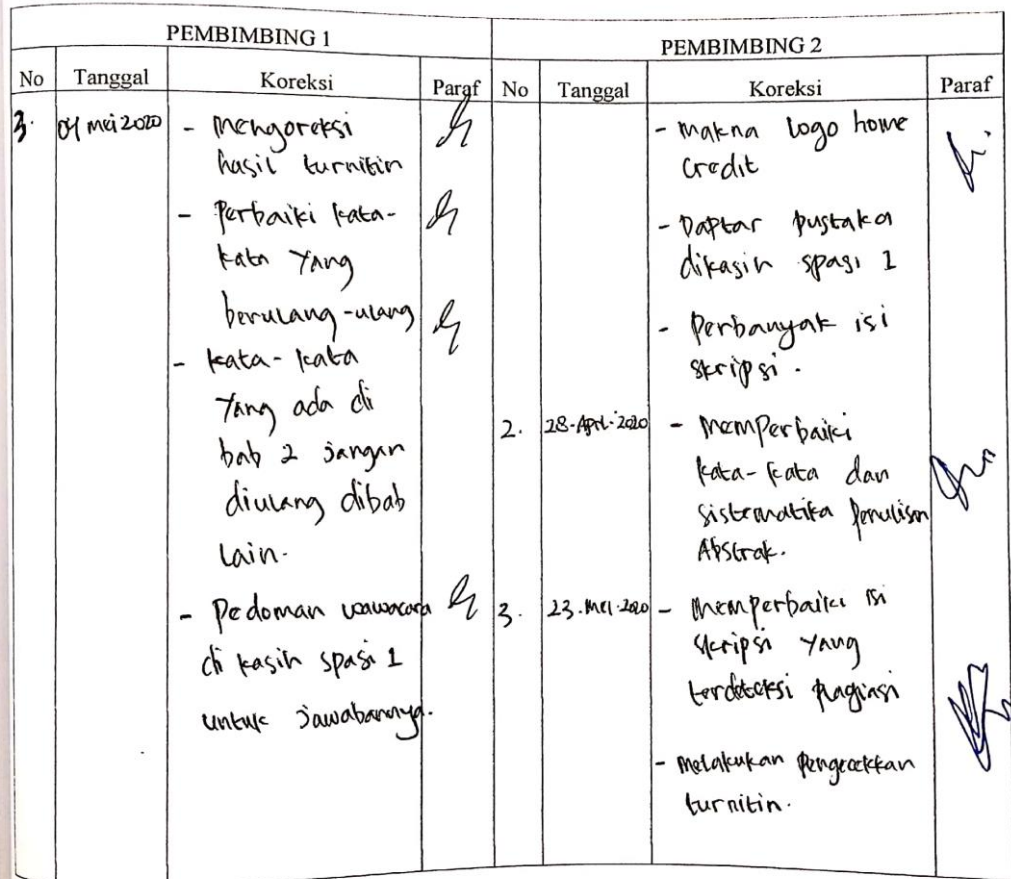 PEMBIMBING 1
No Tanggal Koreksi Paraf
3. 04 mei 2020 - Mengoreksi
hasil turnitin
- Perbaiki kata-
kata Yang
berulang-ulang
- kata-kata
Yang ada di
bab 2 jangan
diulang dibab
lain.
- Pedoman wawacara
di kasih spasi 1
untuk jawabannya.
PEMBIMBING 2
No Tanggal Koreksi Paraf
- makna logo home
credit
- Daptar pustaka
dikasih spasi 1
- Perbanyak isi
skripsi.
2. 28-April-2020 - memperbaiki
kata-kata dan
sistematika Penulisan
Abstrak.
3. 23-Mei-2020 - memperbaiki isi
skripsi Yang
terdeteksi plagiasi
- melakukan pengecekkan
turnitin.